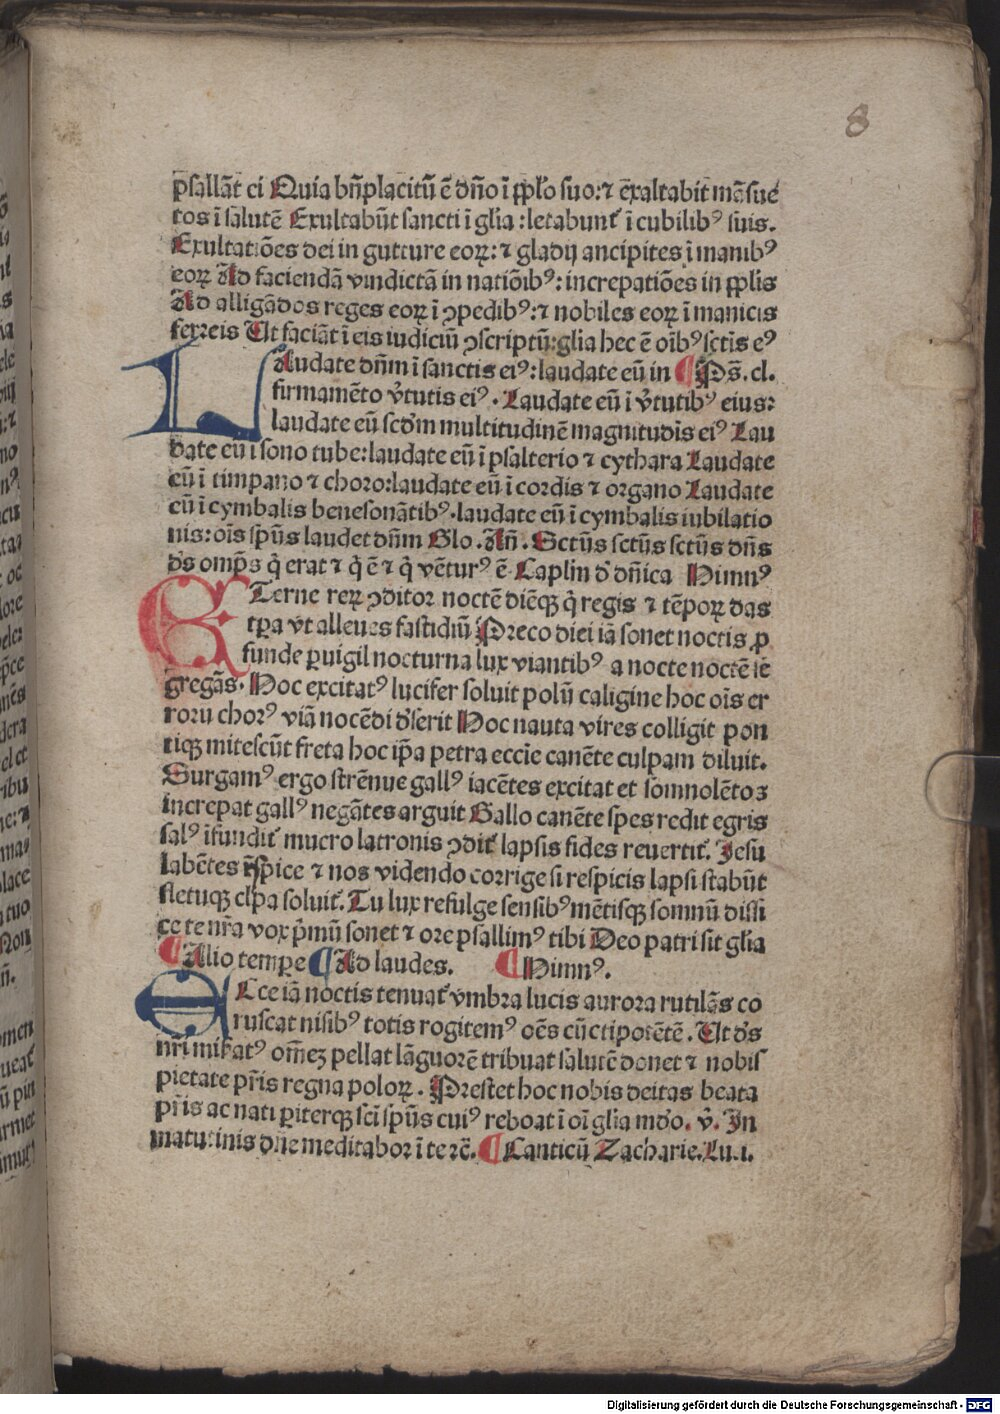 8
psallãt ei Quia bñplacitũ ẽ dño ĩ ꝓplo suo:⁊ ẽxaltabit mãsue
tos ĩ salutẽ Exultabũt sancti ĩ glia:letabunt̃ ĩ cubilibꝰ suis.
Exultatiões dei in gutture eoꝝ:⁊ gladij ancipites ĩ manibꝰ
eoꝝ Ad faciendã vindictã in natiõibꝰ:increpatiões in ꝓplis
Ad alligãdos reges eoꝝ ĩ ꝯpedibꝰ:⁊ nobiles eoꝝ ĩ manicis
ferreis Ut faciãt ĩ eis iudiciũ ꝯscriptũ:glia hec ẽ oĩbꝰ sctĩs eꝰ
LAudate dñm ĩ sanctis eiꝰ:laudate eũ in ¶ Ps̃. cl.
firmamẽto v̾tutis eiꝰ. Laudate eũ ĩ v̾tutibꝰ eius:
laudate eũ scđm multitudinẽ magnitudĩs eiꝰ Lau
date eũ ĩ sono tube:laudate eũ ĩ psalterio ⁊ cythara Laudate
eũ ĩ timpano ⁊ choro:laudate eũ ĩ cordis ⁊ organo Laudate
eũ ĩ cymbalis benesonãtibꝰ.laudate eũ ĩ cymbalis iubilatio
nis:oĩs spũs laudet dñm Glo. Añ. Sctũs sctũs sctũs dñs
d̾s omp̃s q̇ erat ⁊ q̇ ẽ ⁊ q̇ vẽturꝰ ẽ Caplm d̾ dñica Himnꝰ
ETerne reꝝ ꝯditor noctẽ diẽqꝫ q̇ regis ⁊ tẽpoꝝ das
tꝑa vt alleues fastidiũ Preco diei iã sonet noctis ꝓ
funde ꝑuigil nocturna lux viantibꝰ a nocte noctẽ se
gregãs. Hoc excitatꝰ lucifer soluit polũ caligine hoc oĩs er
roru chorꝰ viã nocẽdi d̾serit Hoc nauta vires colligit pon
tiqꝫ mitescũt freta hoc ip̃a petra eccĩe canẽte culpam diluit.
Surgamꝰ ergo strẽnue gallꝰ iacẽtes excitat et somnolẽtoꝫ
increpat gallꝰ negãtes arguit Gallo canẽte spes redit egris
salꝰ ĩfundit̃ mucro latronis ꝯdit̃ lapsis fides reuertit̃. Jesũ
labẽtes respice ⁊ nos videndo corrige si respicis lapsi stabũt
fletuqꝫ clpa soluit̃. Tu lux refulge sensibꝰ mẽtisqꝫ somnũ dissi
ce te nr̃a vox p̃mũ sonet ⁊ ore psallimꝰ tibi Deo patri sit glia
¶ Alio tempe ¶ Ad laudes. ¶ Himnꝰ.
ECce iã noctis tenuat̃ vmbra lucis aurora rutilãs co
ruscat nisibꝰ totis rogitemꝰ oẽs cũctipotẽtẽ. Ut d̾s
nr̃i mi&atꝰ om̃eꝫ pellat lãguorẽ tribuat salutẽ donet ⁊ nobis
pietate pr̃is regna poloꝝ. Prestet hoc nobis deitas beata
pr̃is ac nati ꝑiterqꝫ sci spũs cuiꝰ reboat ĩ oĩ glia mđo. v̾. In
matutinis dñe meditabor ĩ te rc̃. ¶ Canticũ Zacharie. Lu. i.